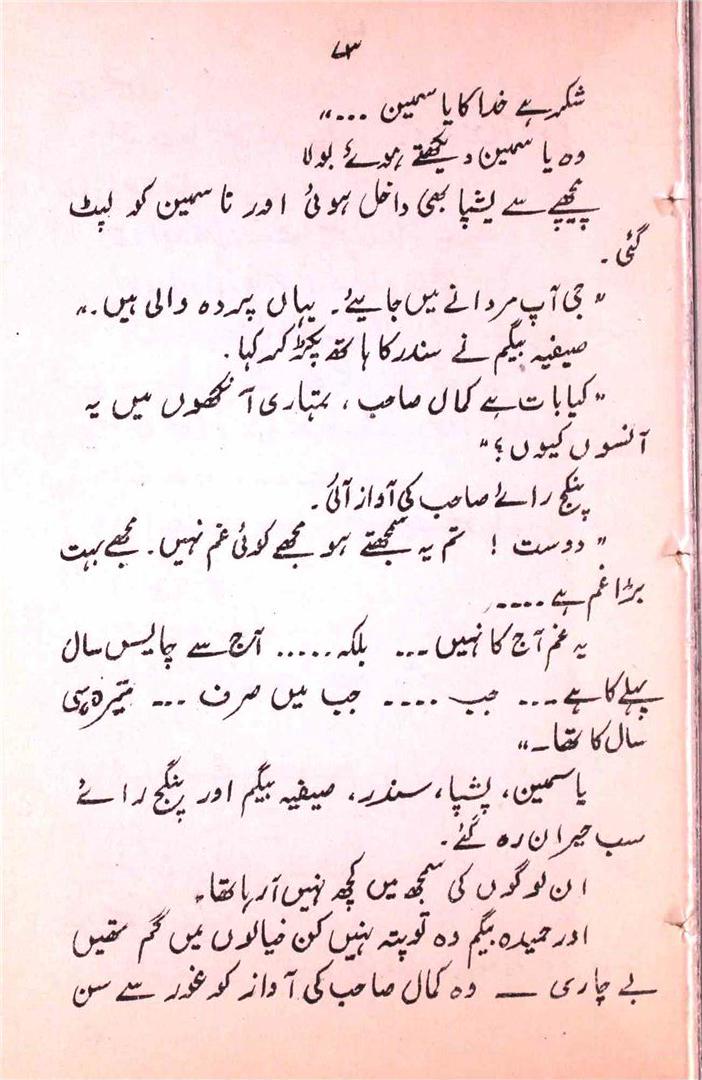 ۷۳
شکر ہے خدا کا یاسمین ...“
وہ یاسمین دیکھتے ہوئے بولا
پیچھے سے پشپا بھی داخل ہوئی اور یاسمین کو لپٹ
گئی۔
”جی آپ مردانے میں جایئے۔ یہاں پردہ والی ہیں۔“
صیفیہ بیگم نے سندر کا ہاتھ پکڑ کر کہا۔
”کیا بات ہے کمال صاحب، تمہاری آنکھوں میں یہ
آنسوں کیوں؟“
پنکج رائے صاحب کی آواز آئی۔
”دوست ! تم یہ سمجھتے ہو مجھے کوئی غم نہیں۔ مجھے بہت
بڑا غم ہے ....
یہ غم آج کا نہیں ... بلکہ ..... آج سے چالیس سال
پہلے کا ہے ... جب .... جب میں صرف ... تیرہ ہی
سال کا تھا۔“
یاسمین، پشپا، سندر، صیفیہ بیگم اور پنکج رائے
سب حیران رہ گئے۔
ان لوگوں کی سمجھ میں کچھ نہیں آرہا تھا۔
اور حمیدہ بیگم وہ تو پتہ نہیں کن خیالوں میں گم تھیں
بے چاری — وہ کمال صاحب کی آواز کو غور سے سن